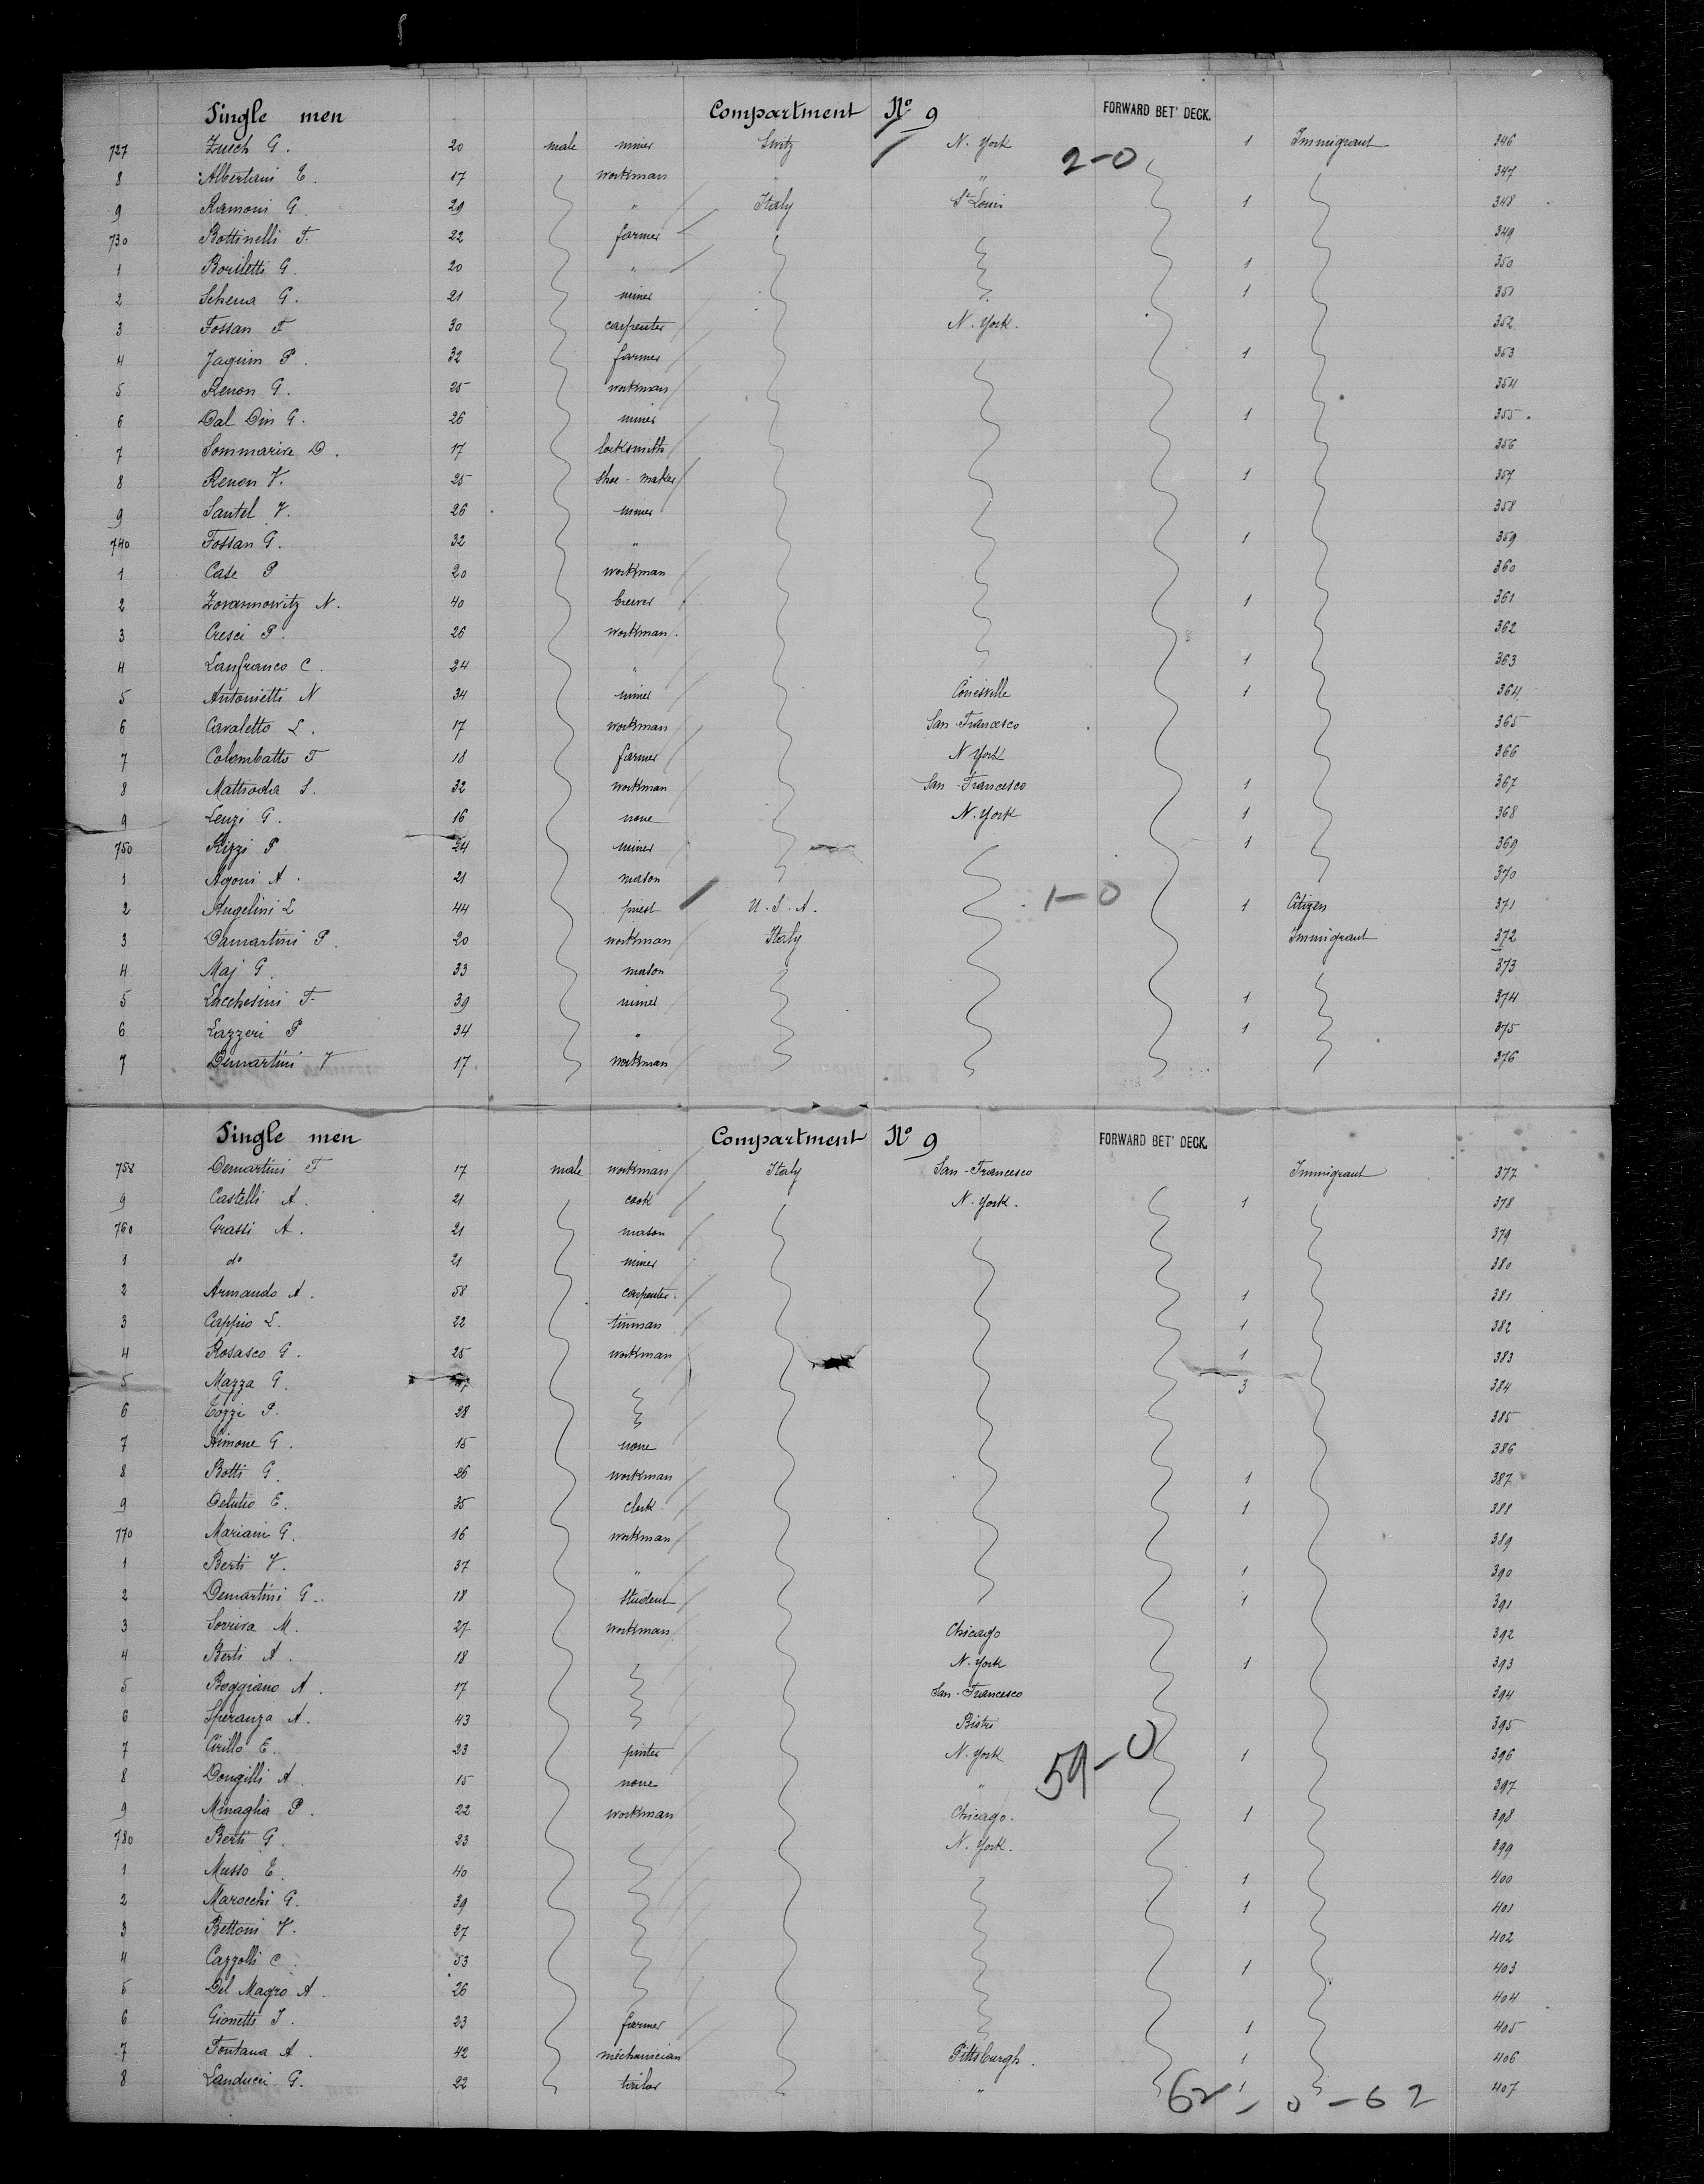 Single men Compartment No 9 FORWARD BET' DECK.
727 Zuech G. 20 male miner Switz N. York 1 Immigrant 346
2-0
8 Albertani E. 17 workman " " 347
9 Ramoni G. 29 " Italy St Louis 1 348
730 Bottinelli F. 22 farmer 349
1 Borsletti G. 20 " 1 350
2 Schena G. 21 miner 1 351
3 Fossan F 30 carpenter N. York. 352
4 Jaquim P. 32 farmer 1 353
5 Renon G. 25 workman 354
6 Dal Din G. 26 miner 1 355
7 Sommariva D. 17 locksmith 356
8 Renon V. 25 shoe-maker 1 357
9 Santel V. 26 miner 358
740 Fossan G. 32 " 1 359
1 Case P 20 workman 360
2 Zovannowitz N. 40 brewer 1 361
3 Cresci P. 26 workman. 362
4 Lanfranco C. 24 " 1 363
5 Antonietti N 34 miner 1 364
6 Cavaletto L. 17 workman San-Francesco 365
7 Colombatto F 18 farmer N York 366
8 Mattioda S. 32 workman San-Francesco 1 367
9 Lenzi G. 16 none N. York 1 368
750 Rizzi P 24 miner 1 369
1 Agoni A. 21 mason 370
2 Angelini L 44 priest U.S.A. 1-0 1 Citizen 371
3 Damartini P. 20 workman Italy Immigrant 372
4 Maj G. 33 mason 373
5 Lucchesini F. 39 miner 1 374
6 Lazzeri P 34 " 1 375
7 Demartini V 17. workman 376
Single men Compartment No 9 FORWARD BET' DECK.
758 Demartini F 17 male workman Italy San-Francesco Immigrant 377
9 Castelli A. 21 cook N. York. 1 378
760 Grassi A. 21 mason 379
1 do 21 miner 380
2 Armando A. 58 carpenter 1 381
3 Cappio L. 22 tinman 1 382
4 Rosasco G. 25 workman 1 383
5 Mazza G. 3 384
6 Tozzi P. 28 385
7 Aimone G. 15 none 386
8 Botti G. 26 workman 1 387
9 Delutio E. 35 clerk 1 388
770 Mariani G. 16 workman 389
1 Berti V. 37 " 1 390
2 Demartini G. 18 student 1 391
3 Sovriva M. 27 workman Chicago 392
4 Berti A. 18 N. York 1 393
5 Boggiano A. 17 San-Francesco 394
6 Speranza A. 43 395
7 Cirillo E. 23 printer N. York 1 396
59-0
8 Dongilli A. 15 none " 397
9 Minaglia P. 22 workman Chicago. 1 398
780 Berti G. 23 N. York. 399
1 Musso E. 40 1 400
2 Marocchi G. 39 1 401
3 Bettoni V. 27 402
4 Cazzolli C. 53 1 403
5 Del Magro A. 26 404
6 Gionetti J. 23 farmer 1 405
7 Fontana A. 42 mechanician Pittsburgh. 1 406
8 Landucci G. 22 tailor " 1 407
62 - 0 - 62